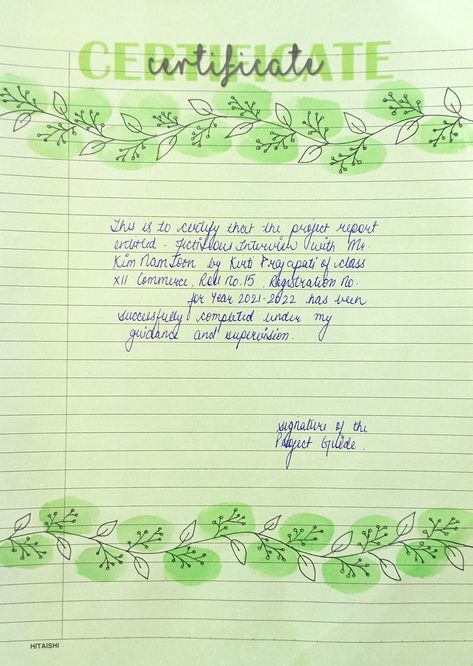 CERTIFICATE
certificate
This is to certify that the project report
entitled - Fictitious Interview with Mr.
Kim NamJoon by Kirti Prajapati of class
XII Commerce, Roll No. 15, Registration No.
for Year 2021-2022 has been
successfully completed under my
guidance and supervision.
signature of the
Project Guide.
HITAISHI